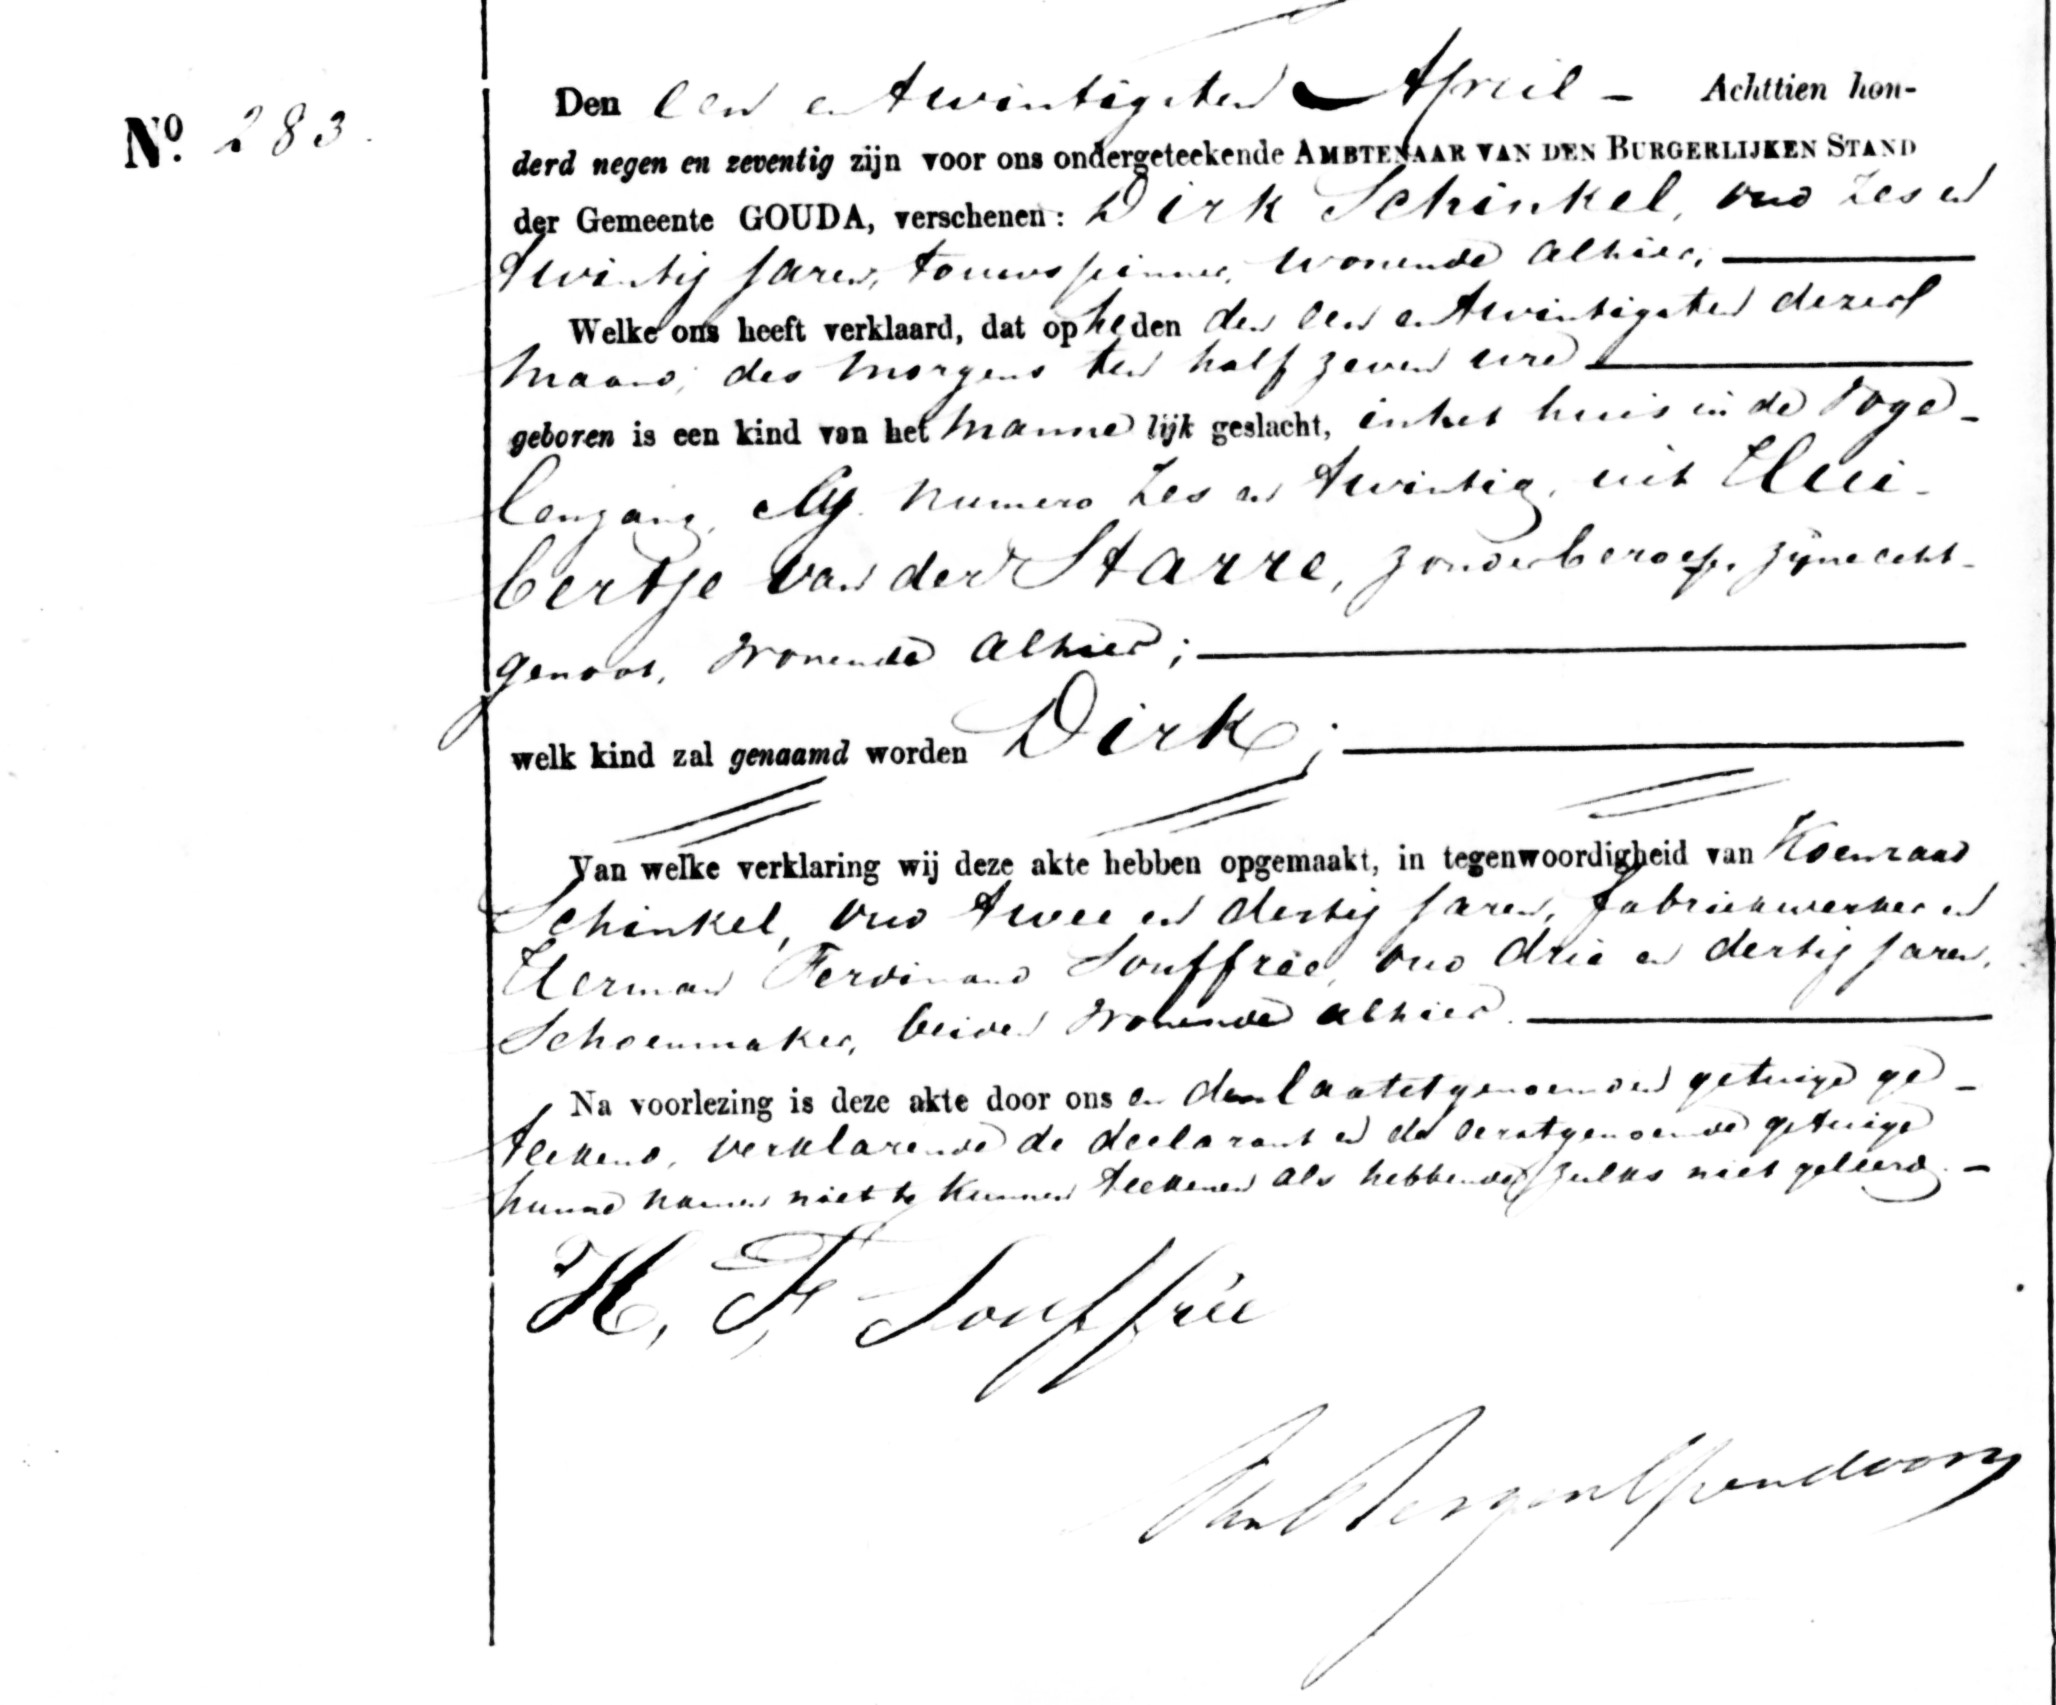 Nº. 283.
Den een en twintigsten April - Achttien hon-
derd negen en zeventig zijn voor ons ondergeteekende AMBTENAAR VAN DEN BURGERLIJKEN STAND
der Gemeente GOUDA, verschenen: Dirk Schinkel, oud zes en
twintig jaren, touwspinner, wonende alhier,
Welke ons heeft verklaard, dat op heden den een en twintigsten dezer
maand, des morgens ten half zeven ure
geboren is een kind van het manne lijk geslacht, in het huis in de Voge-
lenzang, numero zes en twintig, uit Hui-
bertje van der Starre, zonder beroep, zijne echt-
genoot, wonende alhier;
welk kind zal genaamd worden Dirk;
Van welke verklaring wij deze akte hebben opgemaakt, in tegenwoordigheid van Koenraad
Schinkel, oud twee en dertig jaren, fabriekwerker en
Herman Ferdinand Souffrée, oud drie en dertig jaren,
Schoenmaker, beiden wonende alhier.
Na voorlezing is deze akte door ons en den laatstgenoemden getuige ge-
teekend, verklarende de declarant en de eerstgenoemde getuige
hunne namen niet te kunnen teekenen als hebbende zulks niet geleerd. -
H. F. Souffrée
van Bergen IJzendoorn